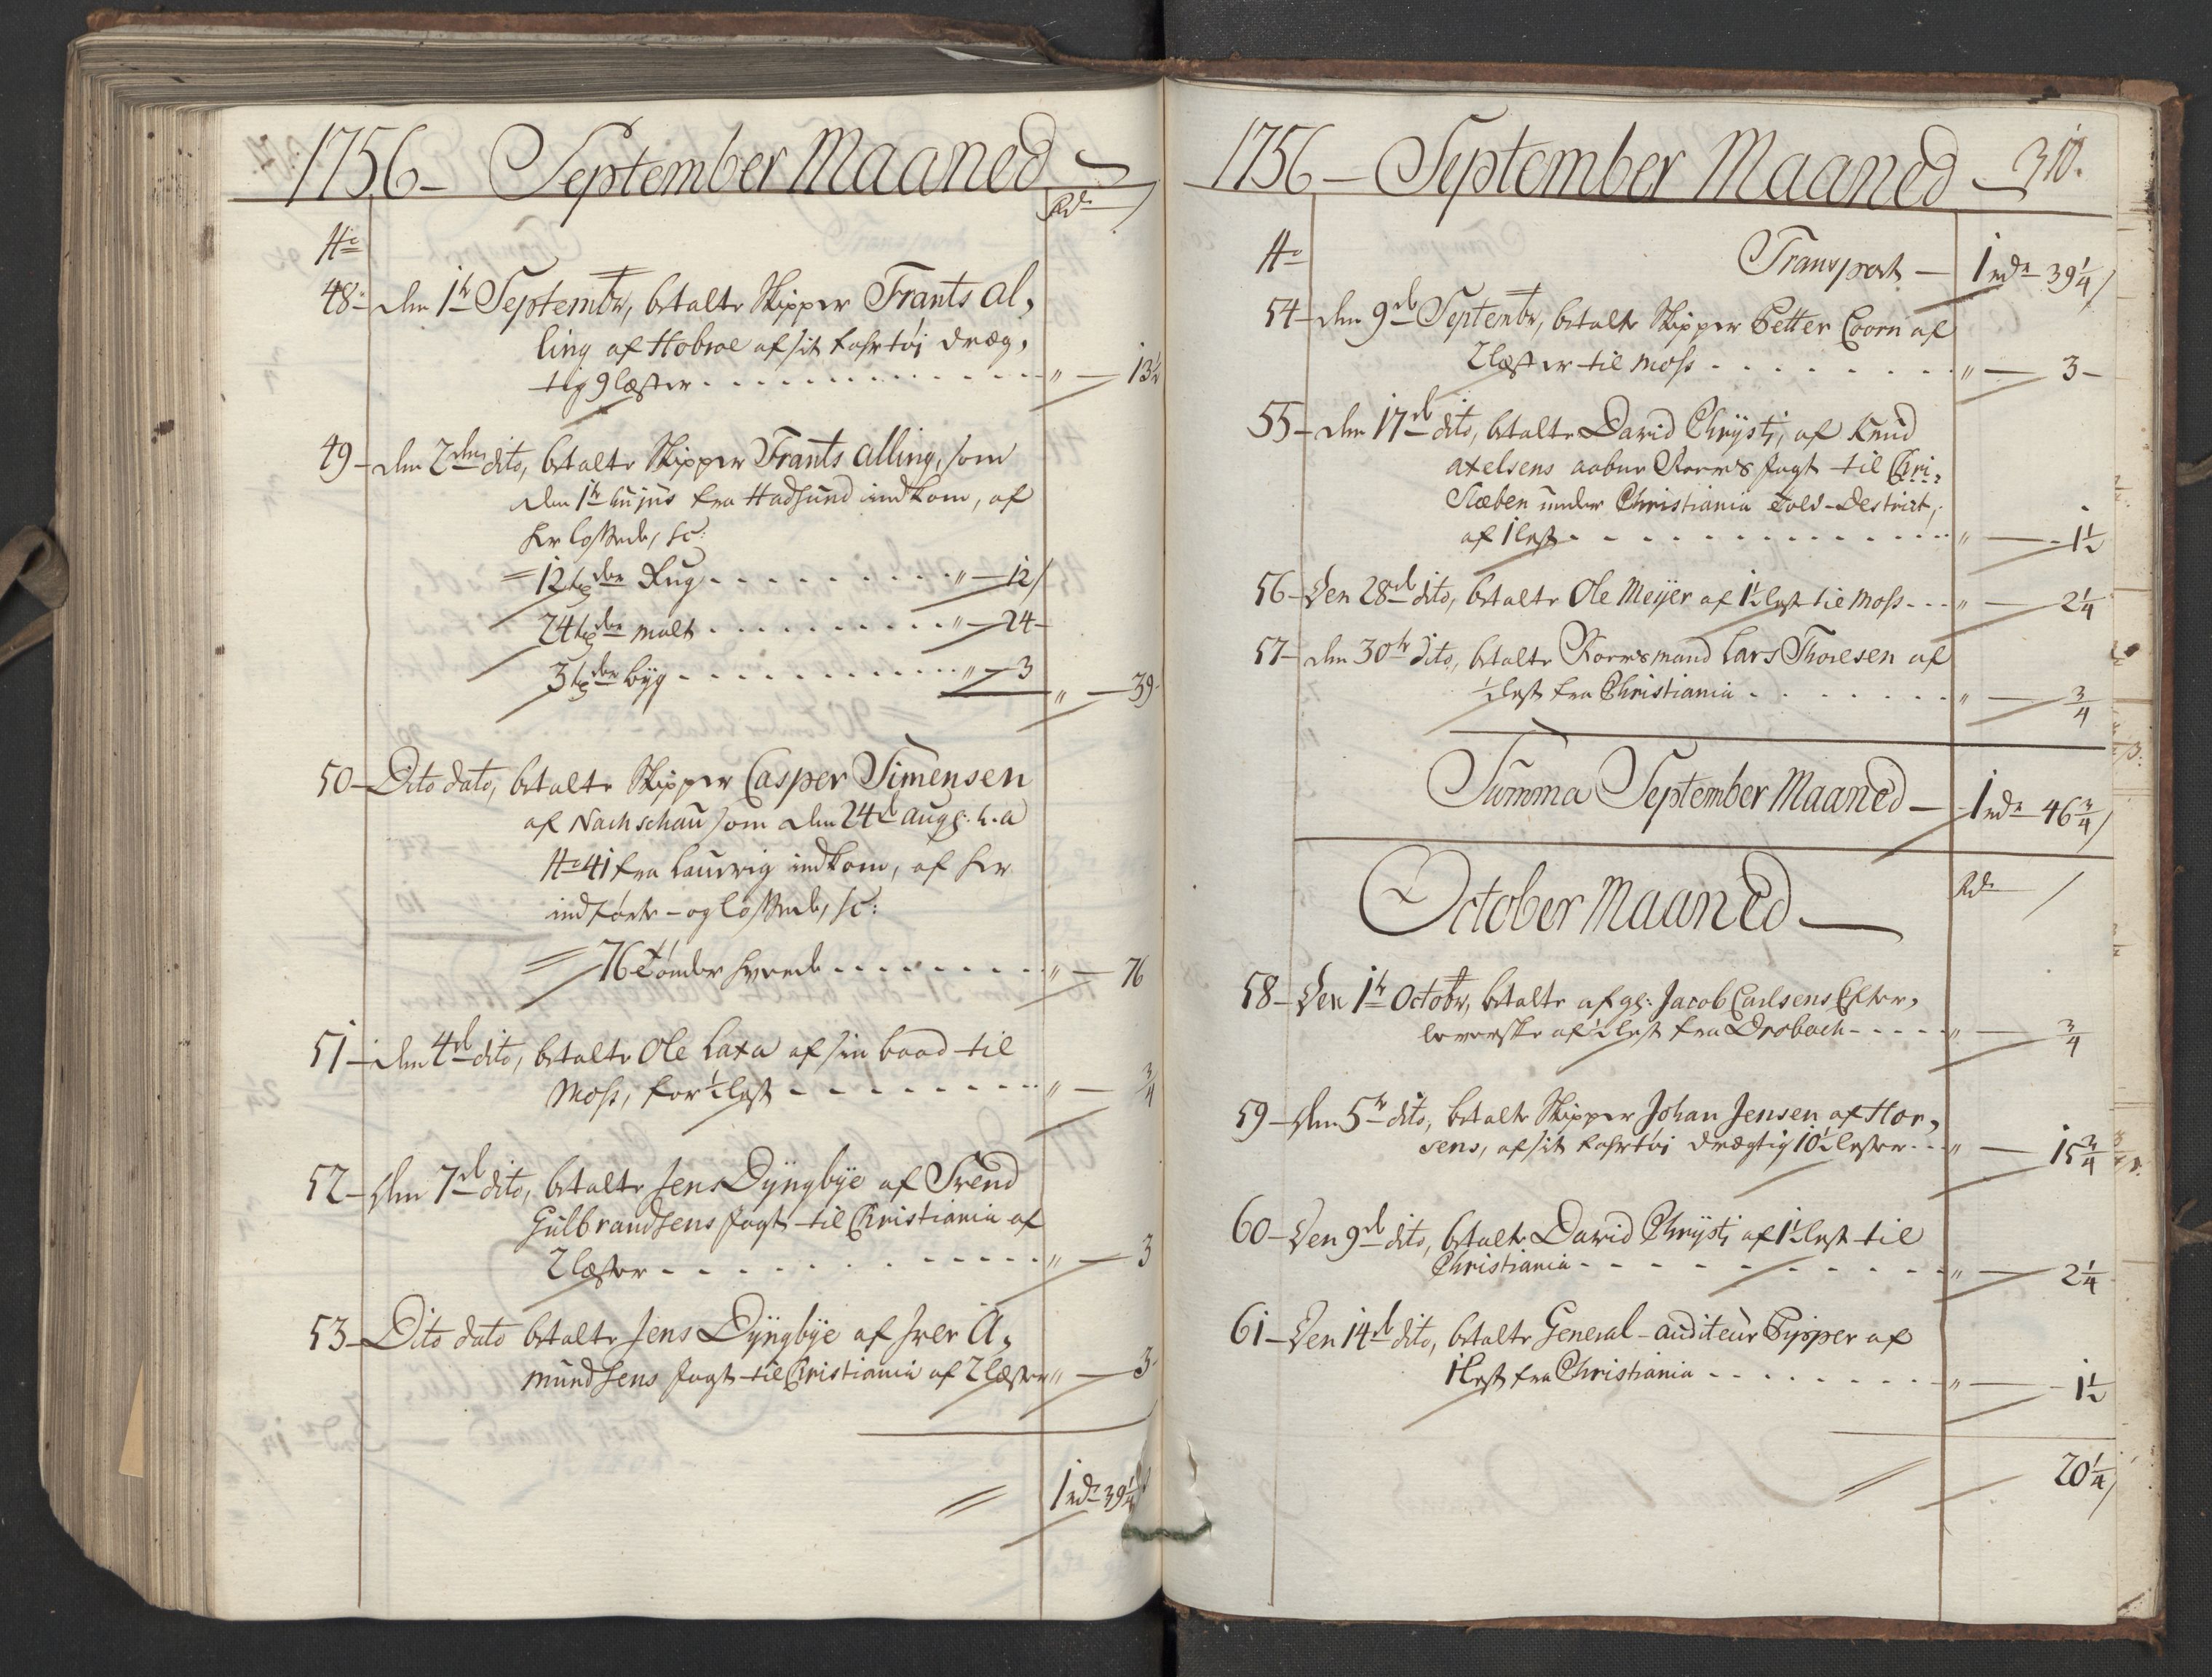 1756 – September Maaned
Rd.
No
48 – den 1te Septembr, betalte Skipper Frants Al,
ling af Hobroe af sit Fahrtøj dræg,
tig 9 læster . . . . " – 13½
49 – den 2den dito, betalte Skipper Frants Alling, som
den 1te hujus fra Hadsund indkom, af
her lossede, sc:
= 12 tdr Rug . . . . " – 12
24 tdr malt . . . . " – 24 –
3 tdr byg . . . . " – 3
" – 39
50 – Dito dato, betalte Skipper Casper Simensen
af Nachschau som den 24d Augs: h.a
No 41 fra Laurvig indkom, af her
indførte – og lossede, sc:
= 76 Tønder hvede . . . . " – 76
51 – den 4d dito, betalte Ole Laxa af sin baad til
Moss, for ½ lest . . . . " – ¾
52 – den 7d dito, betalte Jens Dyngbye af Svend
Gulbrandsens Jagt til Christiania af
2 læster . . . . " – 3
53 – Dito dato betalte Jens Dyngbye af Iver A,
mundsens Jagt til Christiania af 2 læster " – 3
= 1 rdr 39¼
1756 – September Maaned – 310.
No Transport – 1 rdr 39¼
54 – den 9d Septembr, betalte Skipper Petter Coorn af
2 læster til Moss . . . . " – 3 –
55 – den 17d dito, betalte David Chrysti, af Knud
Axelsens aabne Roers Jagt til Chri,
Slæben under Christiania Told-Destrict,
af 1 lest . . . . " – 1½
56 – Den 28d dito, betalte Ole Meyer af 1½ lest til Moss . . . " – 2¼
57 – den 30te dito, betalte Roersmand Lars Thoresen af
½ lest fra Christiania . . . . " – ¾
Summa September Maaned – 1 rdr 46¾
October Maaned –
Rdr
58 – Den 1te Octobr, betalte afgl: Jacob Carlsens Efter,
leverske af ½ lest fra Drobach . . . . " – ¾
59 – den 5te dito, betalte Skipper Johan Jensen af Hor,
sens, af sit Fahrtøj drægtig 10½ lester . . " – 15¾
60 – Den 9d dito, betalte David Chrysti af 1½ lest til
Christiania . . . . " – 2¼
61 – Den 14d dito, betalte General-Auditeur Pipper af
1 lest fra Christiania . . . . " – 1½
= 20¼